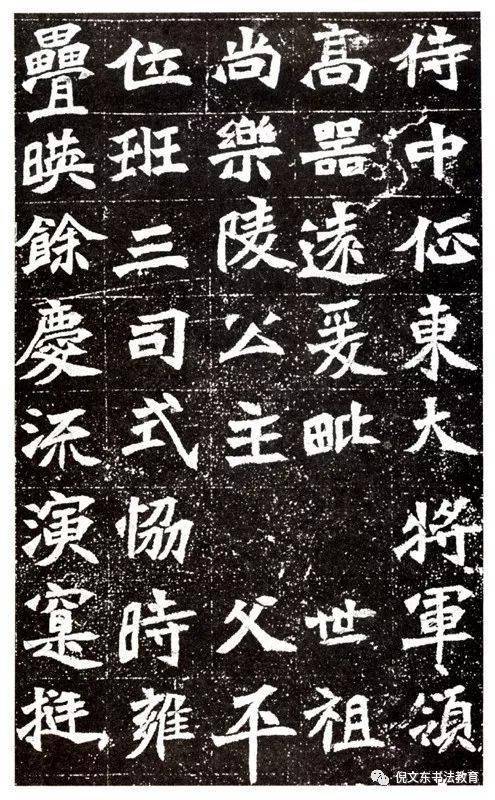 侍中征東大將軍領
高器遠爰毗 世祖
尚樂陵公主 父平
位班三司式恊時雍
疊暎餘慶流演寔挺
倪文东书法教育